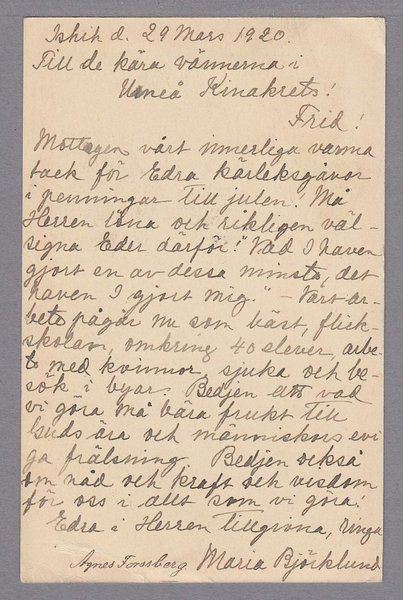 Ishih d. 29 Mars 1920.
Till de kära vännerna i
Umeå Kinakrets!
Frid!
Mottagen vårt innerliga varma
tack för Edra kärleksgåvor
i penningar till julen! Må
Herren löna och rikligen väl-
signa Eder därför. "Vad I haven
gjort en av dessa minsta, det
haven I gjort mig." – Vårt ar-
bete pågår nu som bäst, flick-
skolan, omkring 40 elever, arbe-
te med kvinnor, sjuka och be-
sök i byar. Bedjen att vad
vi göra må bära frukt till
Guds ära och människors evi
ga frälsning. Bedjen också
om nåd och kraft och visdom
för oss i allt som vi göra!
Edra i Herren tillgivna, unga
Agnes Forssberg Maria Björklund